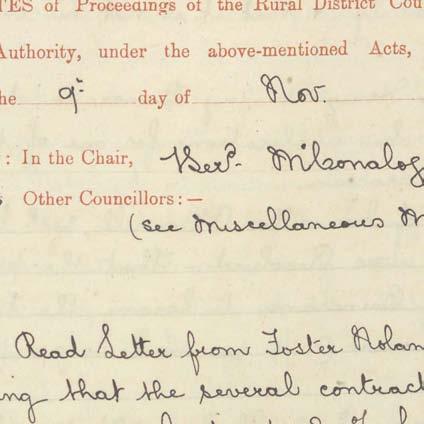 TES of Proceedings of the Rural District Cou
Authority, under the above-mentioned Acts,
he 9th day of Nov.
: In the Chair,
Other Councillors :—
(see Miscellaneous M
Read Letter from Foster Rolan
ing that the several contract